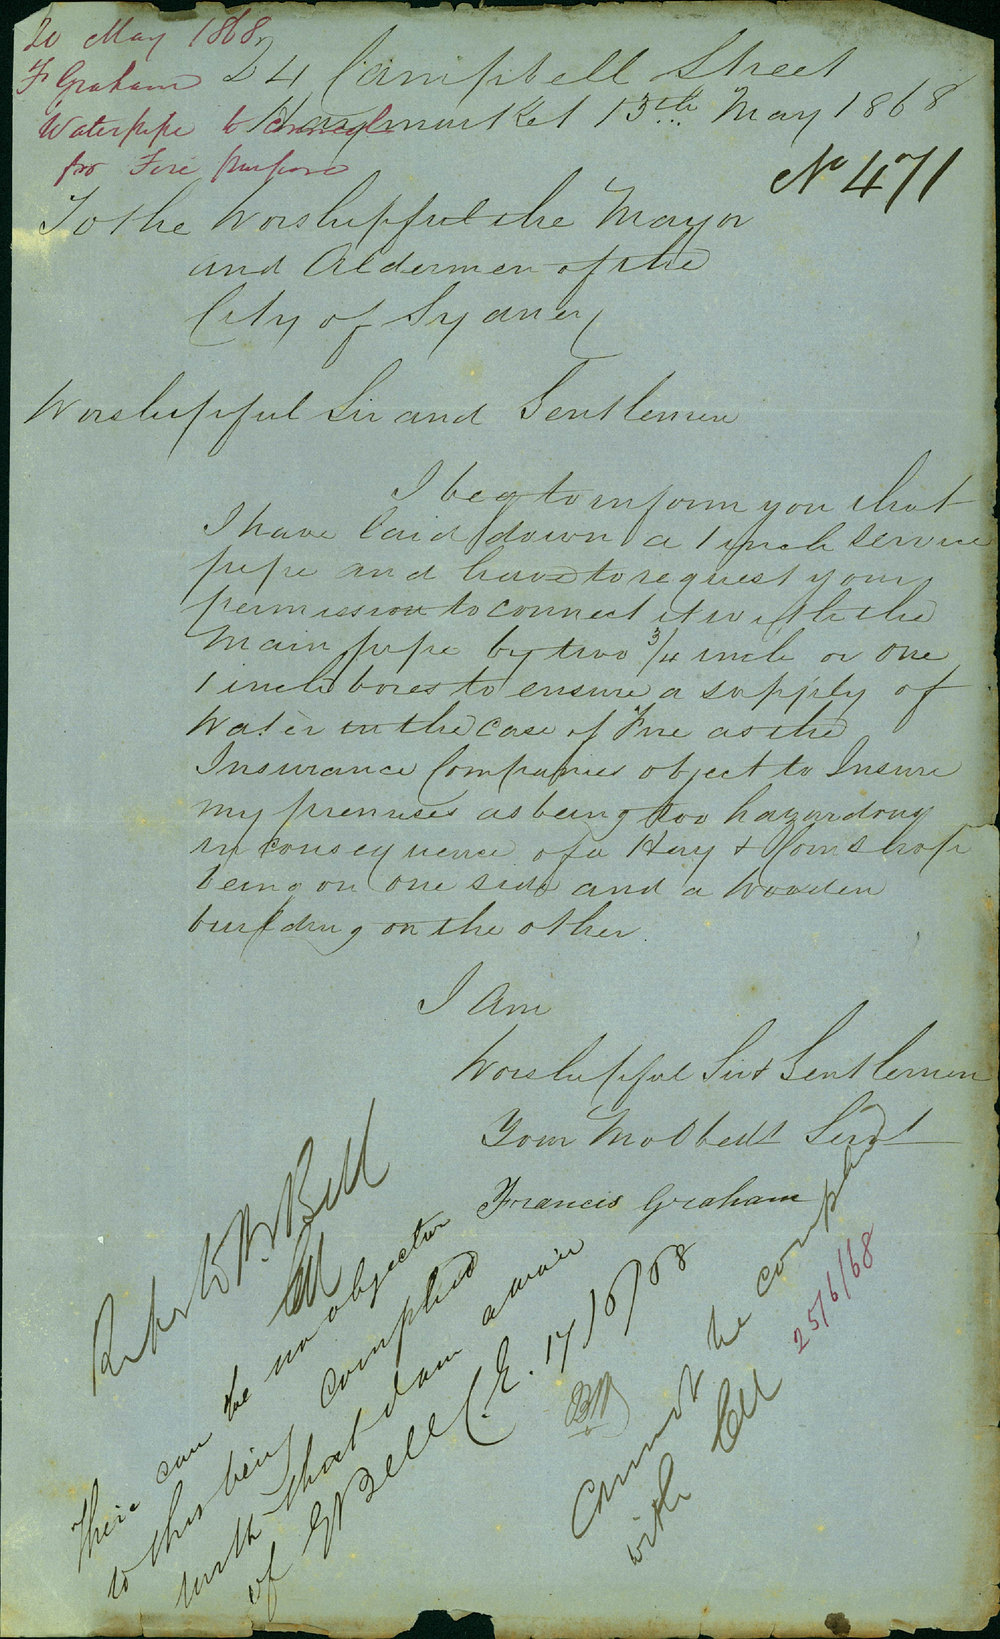 20 May 1868
F Graham
Waterpipe to connect
for Fire purposes
24 Campbell Street
Haymarket 13th May 1868
No 471
To the Worshipful the Mayor
and Aldermen of the
City of Sydney
Worshipful Sir and Gentlemen
I beg to inform you that
I have laid down a 1 inch service
pipe and have to request your
permission to connect it with the
Main pipe by two 3/4 inch or one
1 inch bores to ensure a supply of
Water in the case of Fire as the
Insurance Companies object to Insure
my premises as being too hazardous
in consequence of a Hay & Corn shop
being on one side and a wooden
building on the other.
I Am
Worshipful Sir & Gentlemen
Your Mo Obedt Servt
Francis Graham
Refer to Mr Bell
There can be no objection
to this being complied
with that I am aware
of E Bell C.E. 17/6/68
Cannot be complied
with
25/6/68